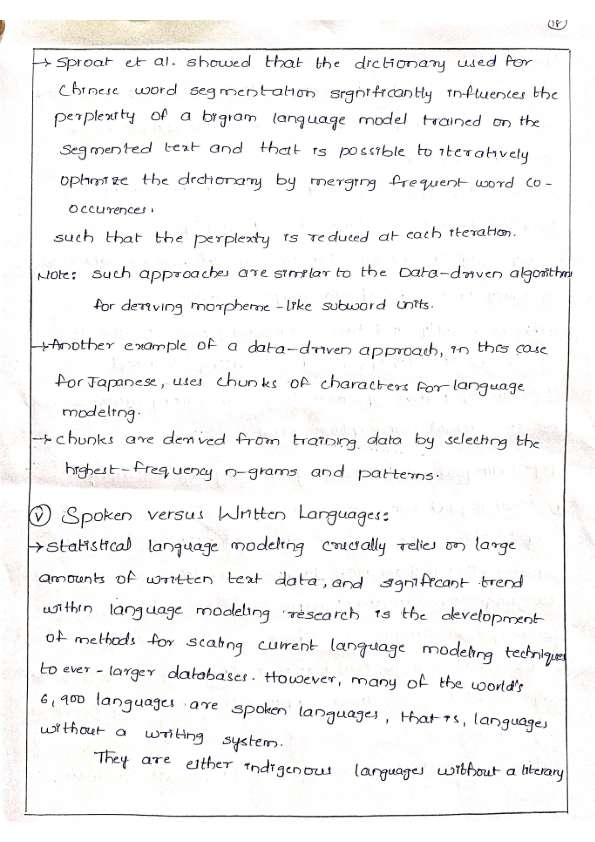 18
→ Sproat et al. showed that the dictionary used for
Chinese word segmentation significantly influences the
perplexity of a bigram language model trained on the
segmented text and that is possible to iteratively
optimize the dictionary by merging frequent word co-
occurences.
such that the perplexty is reduced at each iteration.
Note: such approaches are similar to the Data-driven algorithm
for deriving morpheme-like subword units.
→ Another example of a data-driven approach, in this case
for Japanese, uses chunks of characters for language
modeling.
→ chunks are derived from training data by selecting the
highest-frequency n-grams and patterns.
Ⓥ Spoken versus Written Languages:
→ Statistical language modeling crucially relies on large
amounts of written text data, and significant trend
within language modeling research is the development
of methods for scaling current language modeling techniques
to ever-larger databases. However, many of the world's
6,900 languages are spoken languages, that is, languages
without a writing system.
They are either indigenous languages without a literary